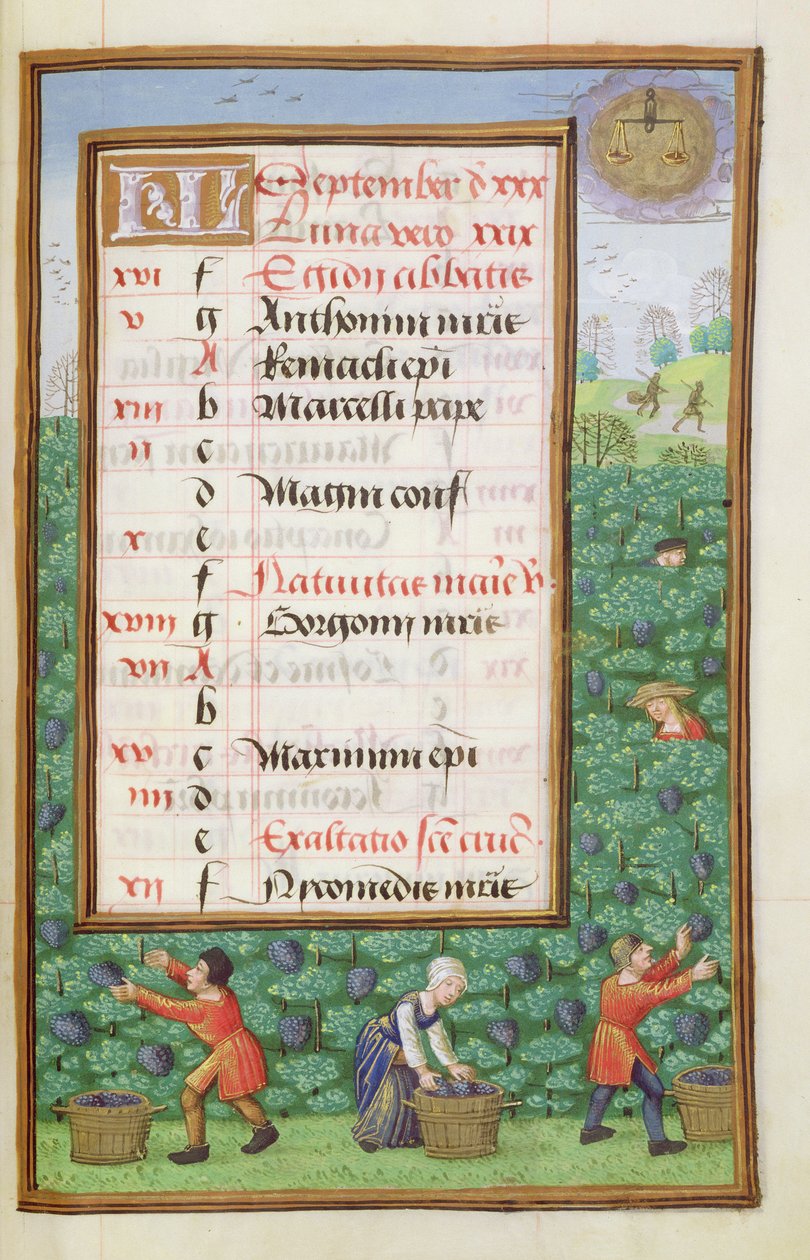 KL September đ xxx
Luna vero xxix
xvi f Egidij abbatis
v g Anthonini mrīs
A Remacli epī
xiii b Marcelli pape
ii c
d Magni conf
x e
f Natiuitas marie v.
xviii g Gorgonij mrīs
vii A
b
xv c Maximini epī
iiii d
e Exaltatio scē cruc.
xii f Nycomedis mrīs